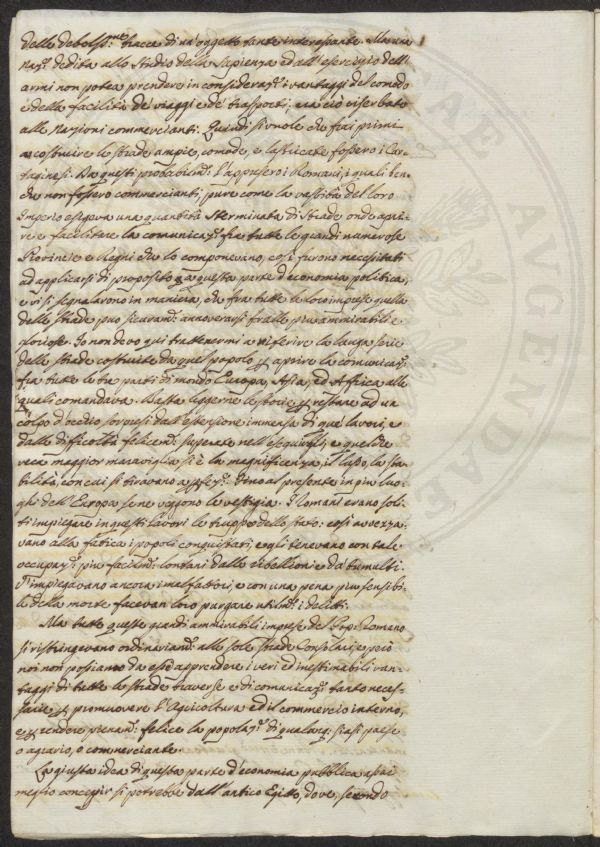 delle deboliss:me tracce di un oggetto tanto interessante. Ma una
naz:e dedita allo Studio della Sapienza ed all'esercizio dell'
armi non potea prendere in consideraz:e i vantaggi del comodo
e della facilità de' viaggi e de' trasporti; era ciò riserbato
alle Nazioni commercianti. Quindi si vuole che fra i primi
a costruire le strade ampie, comode, e lastricate fossero i Car-
taginesi. Da questi probabilm:e l'appresero i Romani, i quali ben-
che non fossero commercianti, pure come la vastità del loro
Imperio esigeva una quantità sterminata di Strade onde apri-
re e facilitare la comunicaz:e fra tutte le grandi numerose
Provincie e Regni che lo componevano, così furono necessitati
ad applicarsi di proposito a questa parte d'economia politica,
e vi si segnalarono in maniera, che fra tutte le loro imprese quella
delle strade può sicuram:e annoverarsi fralle più ammirabili e
gloriose. Io non devo qui trattenermi a riferire la lunga serie
delle strade costruite da quel popolo p aprire la comunicaz:e
fra tutte le tre parti di mondo Europa, Asia, ed Africa alle
quali comandava. Basta leggerne le storie p restare ad un
colpo d'occhio sorpresi dall'estensione immensa di que' lavori, e
dalle difficoltà felicem:e superate nell'eseguirgli, e quel che
reca maggior maraviglia si è la magnificenza, il lusso, la sta-
bilità, con cui si tiravano a Fino al presente in più luo-
ghi dell'Europa se ne veggono le vestigia. I Romani erano soli-
ti impiegare in questi lavori le truppe dello stato: così avvezza-
vano alla fatica i popoli conquistati, e gli tenevano con tale
occupaz:e più facilm:e lontani dalle ribellioni e da' tumulti.
V'impiegavano ancora i malfattori, e con una pena più sensibi-
le della morte facevan loro purgare utilm:e i delitti.
Ma tutte queste grandi ammirabili imprese del Pop: Romano
si ristringevano ordinariam:e alle sole strade Consolari, e perciò
noi non possiamo da esso apprendere i veri ed inestimabili van-
taggi di tutte le strade traverse e di comunicaz:e tanto neces-
sarie p promuovere l'Agricoltura ed il commercio interno,
e p rendere pienam:e felice la popolaz:e di qualunq: siasi paese
o agrario, o commerciante.
La giusta idea di questa parte d'economia pubblica assai
meglio concepir si potrebbe dall'antico Egitto, dove, secondo